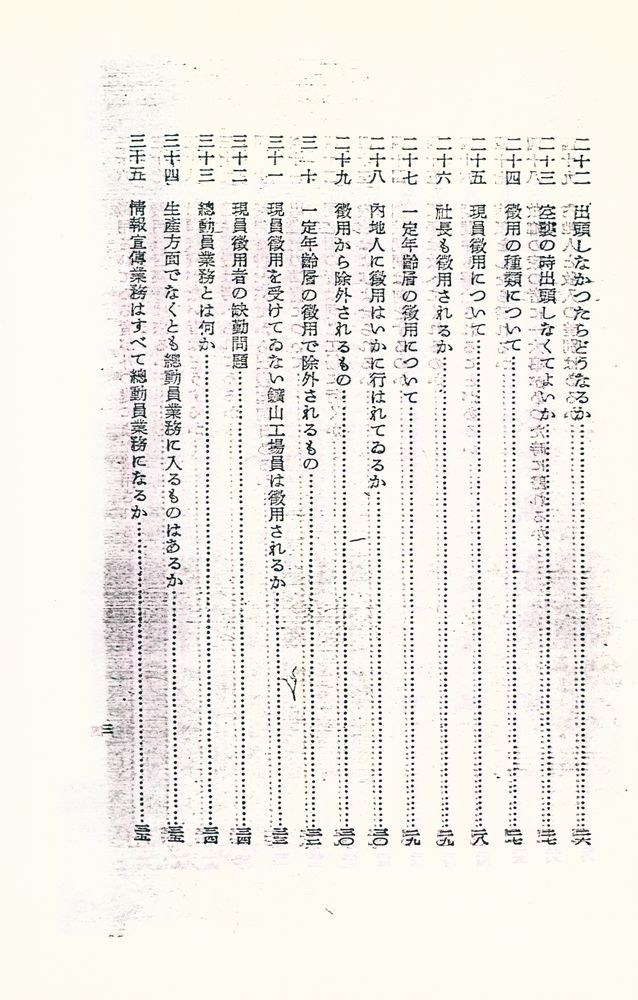 二十二 出頭しなかつたらどうなるか……二六
二十三 空襲の時出頭しなくてよいか……二七
二十四 徴用の種類について……二七
二十五 現員徴用について……二八
二十六 社長も徴用されるか……二九
二十七 一定年齢層の徴用について……二九
二十八 內地人に徴用はいかに行はれてゐるか……三〇
二十九 徴用から除外されるもの……三〇
三十 一定年齢層の徴用で除外されるもの……
三十一 現員徴用を受けてゐない鑛山工場員は徴用されるか……三三
三十二 現員徴用者の缺勤問題……三四
三十三 總動員業務とは何か……三四
三十四 生產方面でなくとも總動員業務に入るものはあるか……三五
三十五 情報宣傳業務はすべて總動員業務になるか……三五
三